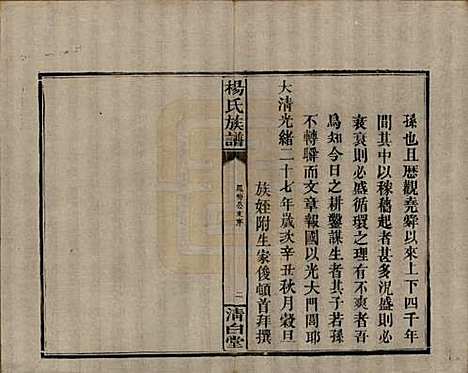 孫也且歷觀堯舜以來上下四千年
間其中以稼穡起者甚多況盛則必
衰衰則必盛循環之理有不爽者吾
爲知今日之耕鑿謀生者其子若孫
不轉瞬而文章報國以光大門閭耶
大清光緒二十七年歲次辛丑秋月穀旦
族姪附生家俊頓首拜撰
楊氏族譜
二
清白堂